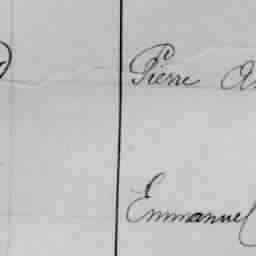 Pierre
Emmanuel